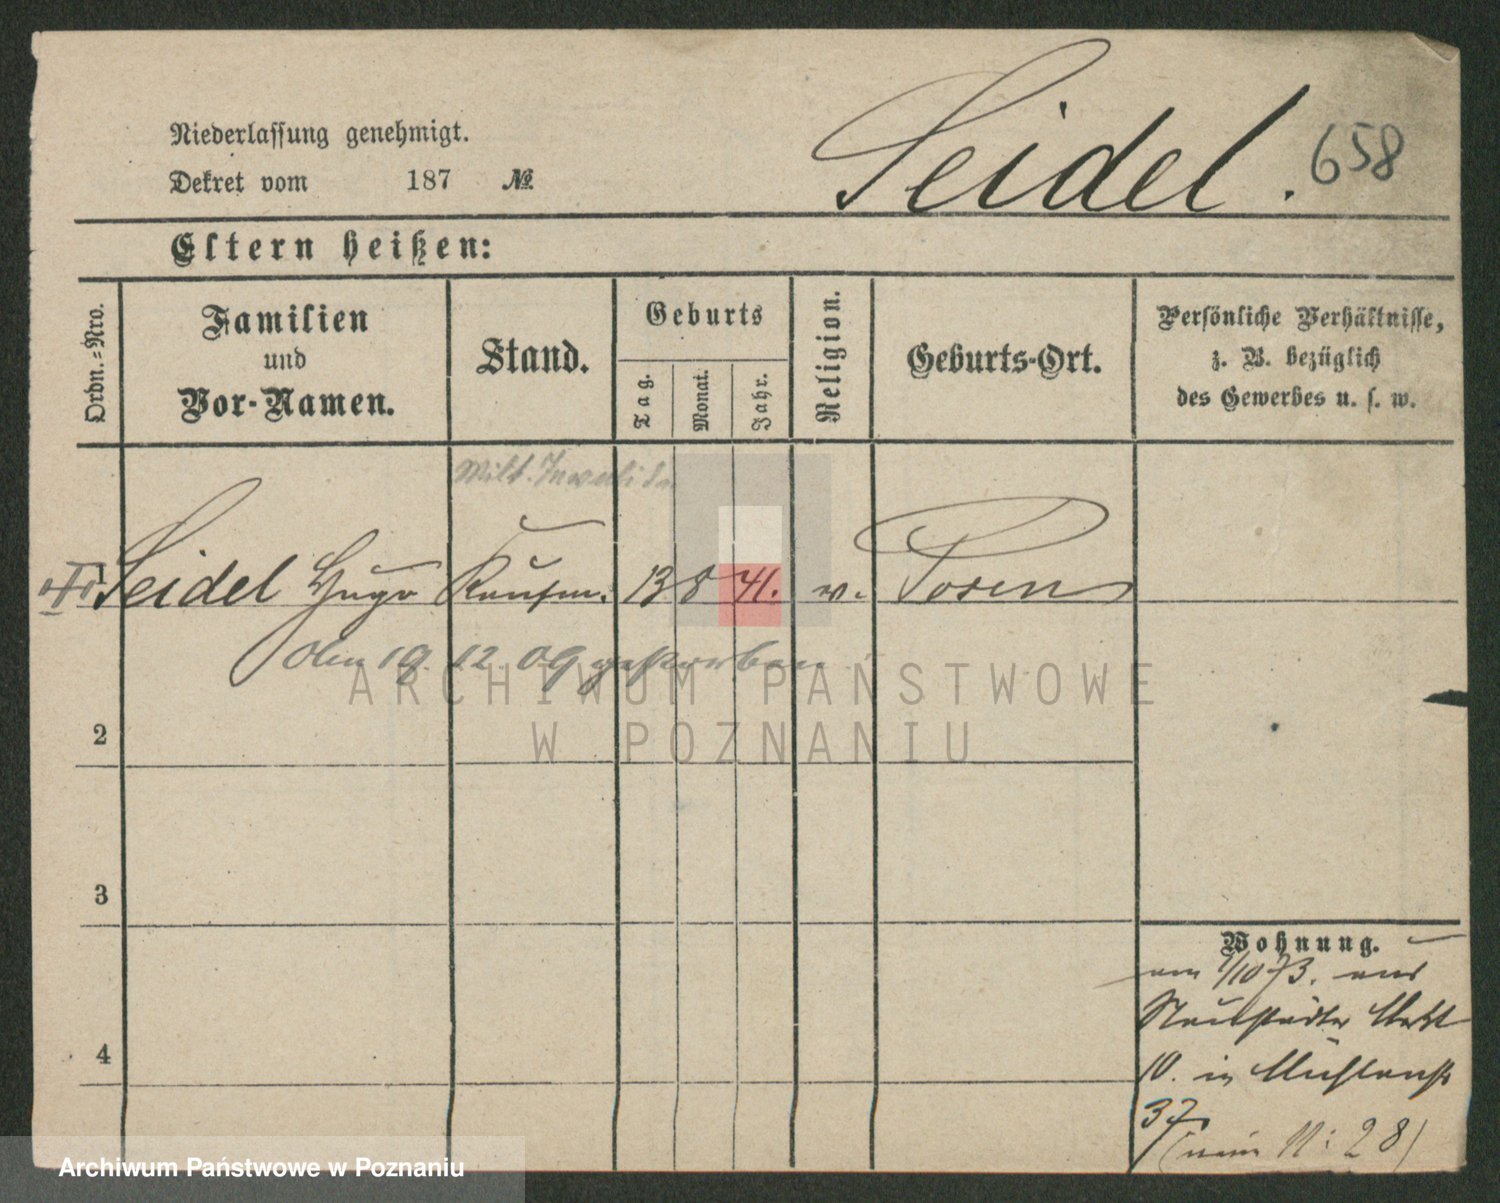 Niederlassung genehmigt.
Dekret vom 187 №
Seidel. 658
Eltern heißen:
Ordn.=Nro.
Familien
und
Vor-Namen.
Stand.
Geburts
Tag.
Monat.
Jahr.
Religion.
Geburts-Ort.
Persönliche Verhältnisse,
z. B. bezüglich
des Gewerbes u. s. w.
Milt. Invalide
1 Seidel Hugo Kaufm. 13 8 41. Posen
Am 19. 12. 09 gestorben
ARCHIWUM PAŃSTWOWE
W POZNANIU
2
3
4
Wohnung.
am 1/10 73. aus
Neustädter Markt
10. in Mühlenstr
37
(neue N: 28)
Archiwum Państwowe w Poznaniu